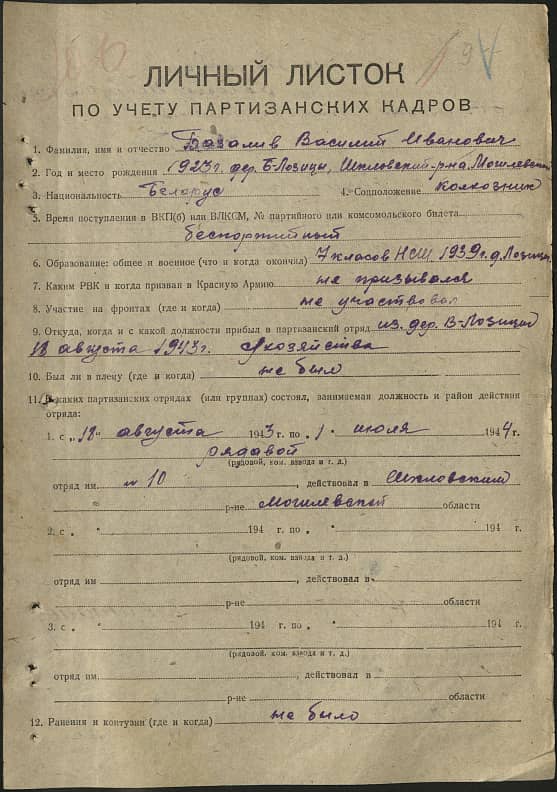 ЛИЧНЫЙ ЛИСТОК
ПО УЧЕТУ ПАРТИЗАНСКИХ КАДРОВ
1. Фамилия, имя и отчество Василий Иванович
2. Год и место рождения 1923 г. дер. Б-Лозицы, Шкловский р-на
3. Национальность Беларус 4. Соцположение колхозник
5. Время поступления в ВКП(б) или ВЛКСМ, № партийного или комсомольского билета
беспартийный
6. Образование: общее и военное (что и когда окончил) 7 класов НСШ 1939 г. д. Лозицы
7. Каким РВК и когда призван в Красную Армию не призывался
8. Участие на фронтах (где и когда) не участвовал
9. Откуда, когда и с какой должности прибыл в партизанский отряд из дер. Лозицы
18 августа 1943 г. хозяйства
10. Был ли в плену (где и когда) не было
11. В каких партизанских отрядах (или группах) состоял, занимаемая должность и район действия
отряда:
1. с „18" августа 1943 г. по „1 июля 1944 г.
рядавой
(рядовой, ком. взвода и т. д.)
отряд им. 10, действовал в Шкловский
р-не Могилевской области
2. с „ " 194 г. по „ " 194 г.
(рядовой, ком. взвода и т. д.)
отряд им , действовал в
р-не области
3. с „ " 194 г. по „ " 194 г.
(рядовой, ком. взвода и т. д.)
отряд им. , действовал в
р-не области
12. Ранения и контузии (где и когда) не было